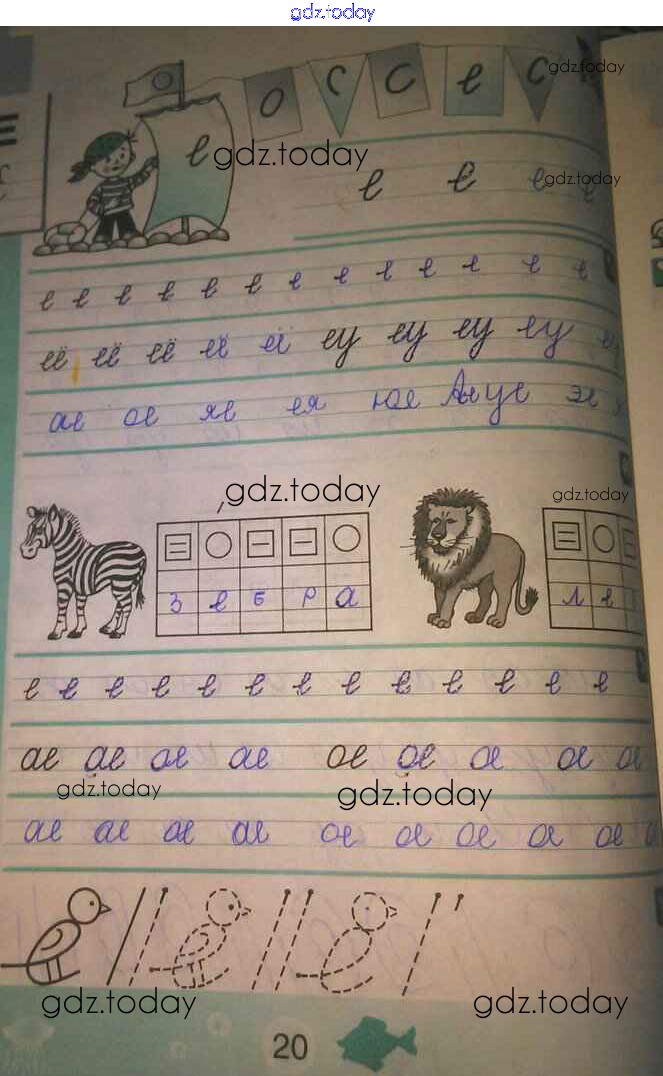 gdz.today
о с с е с gdz.today
е gdz.today
е е е gdz.today
е е е е е е е е е е е е е
её её её её её еу еу еу еу
ае ое яе ея юе
gdz.today gdz.today
з е б р а л е
е е е е е е е е е е е е е
ае ае ае ае ое ое ое ое ое
gdz.today gdz.today
ае ае ае ае ое ое ое ое ое
gdz.today gdz.today
20